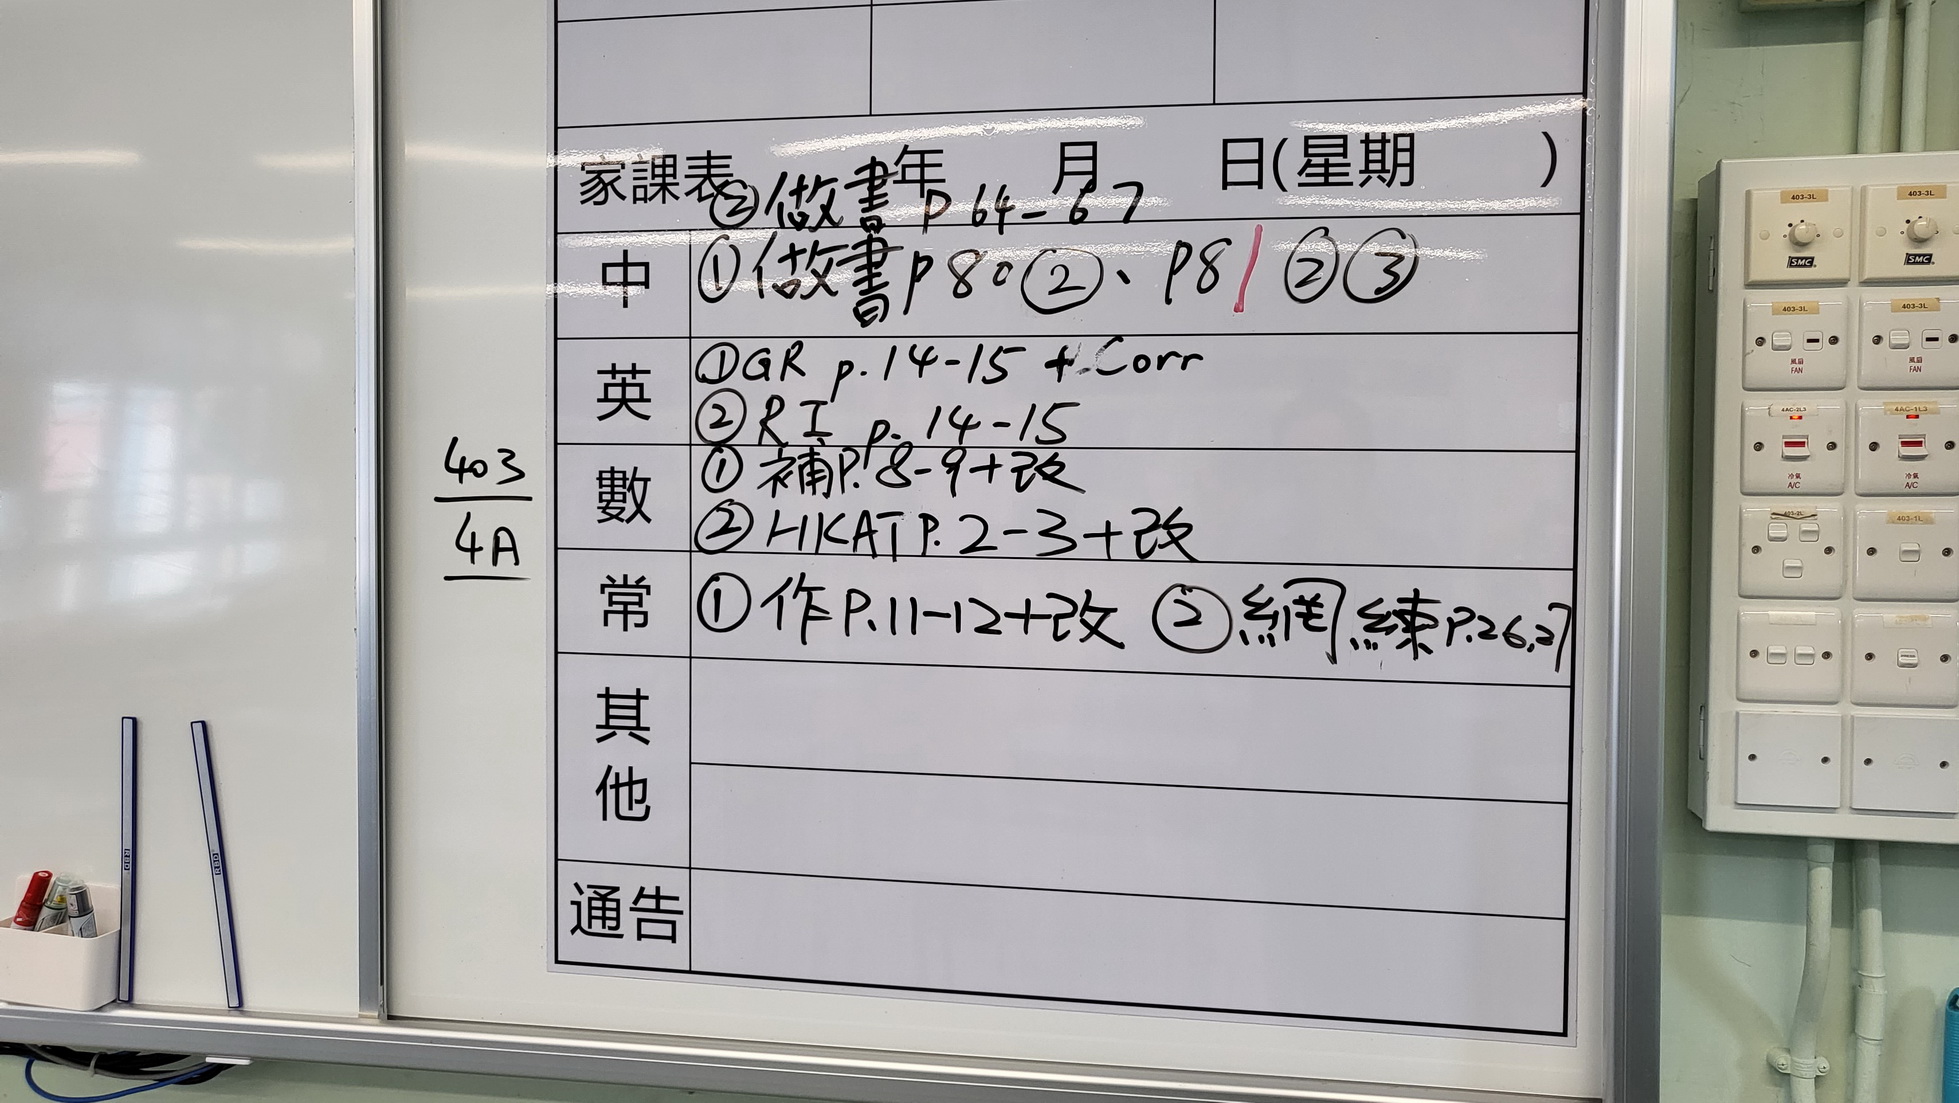 家課表 年 月 日(星期 )
②做書 P 64-67
中 ①做書 P 80 ②、P81 ② ③
英 ①GR p.14-15 + Corr
②RI p. 14-15
數 ① 補P. 8-9+改
② HKAT P. 2-3+改
常 ① 作P.11-12+改 ② 網練P.26,27
其他
通告
403
4A
403-3L
403-3L
SMC
SMC
403-3L
403-3L
風扇
FAN
風扇
FAN
4AC-2L3
4AC-1L3
冷氣
A/C
冷氣
A/C
403-1L